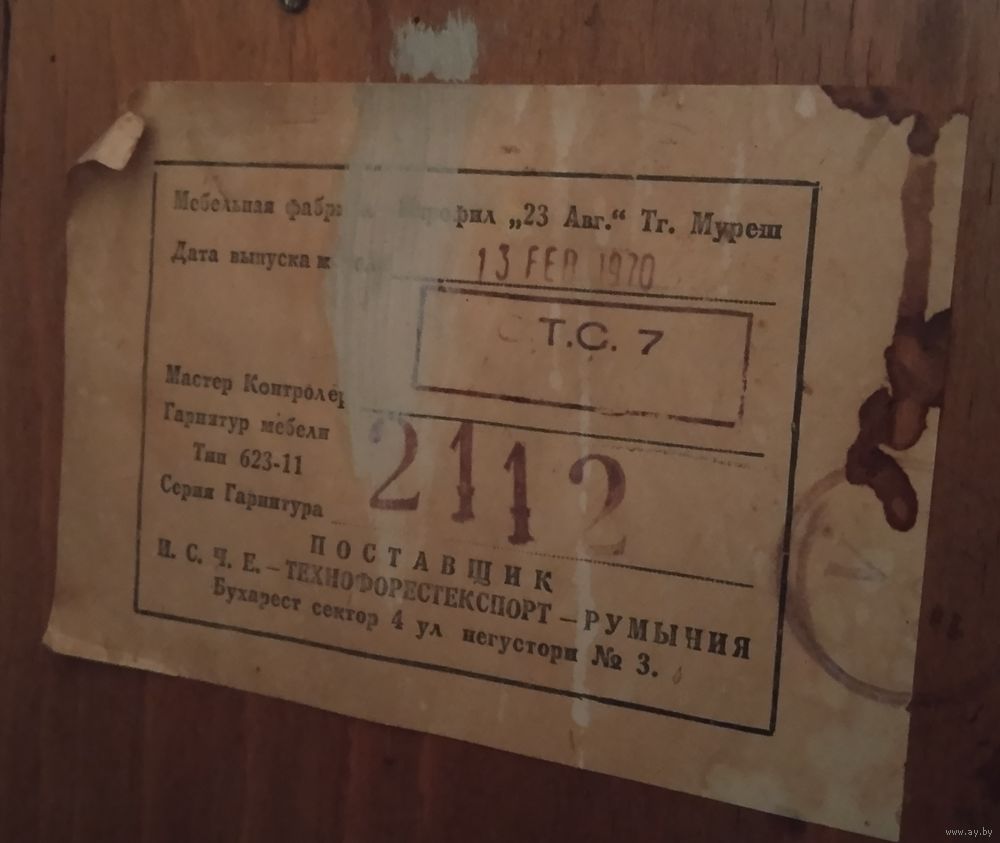 Мебельная „23 Авг.“ Тг. Муреш
Дата выпуска
13 FEB 1970
Т.С. 7
Мастер Контролер
Гарнитур мебели
Тип 623-11
Серия Гарнитура
2112
ПОСТАВЩИК
И. С. Ч. Е. – ТЕХНОФОРЕСТЕКСПОРТ – РУМЫНИЯ
Бухарест сектор 4 ул негустори № 3.
www.ay.by